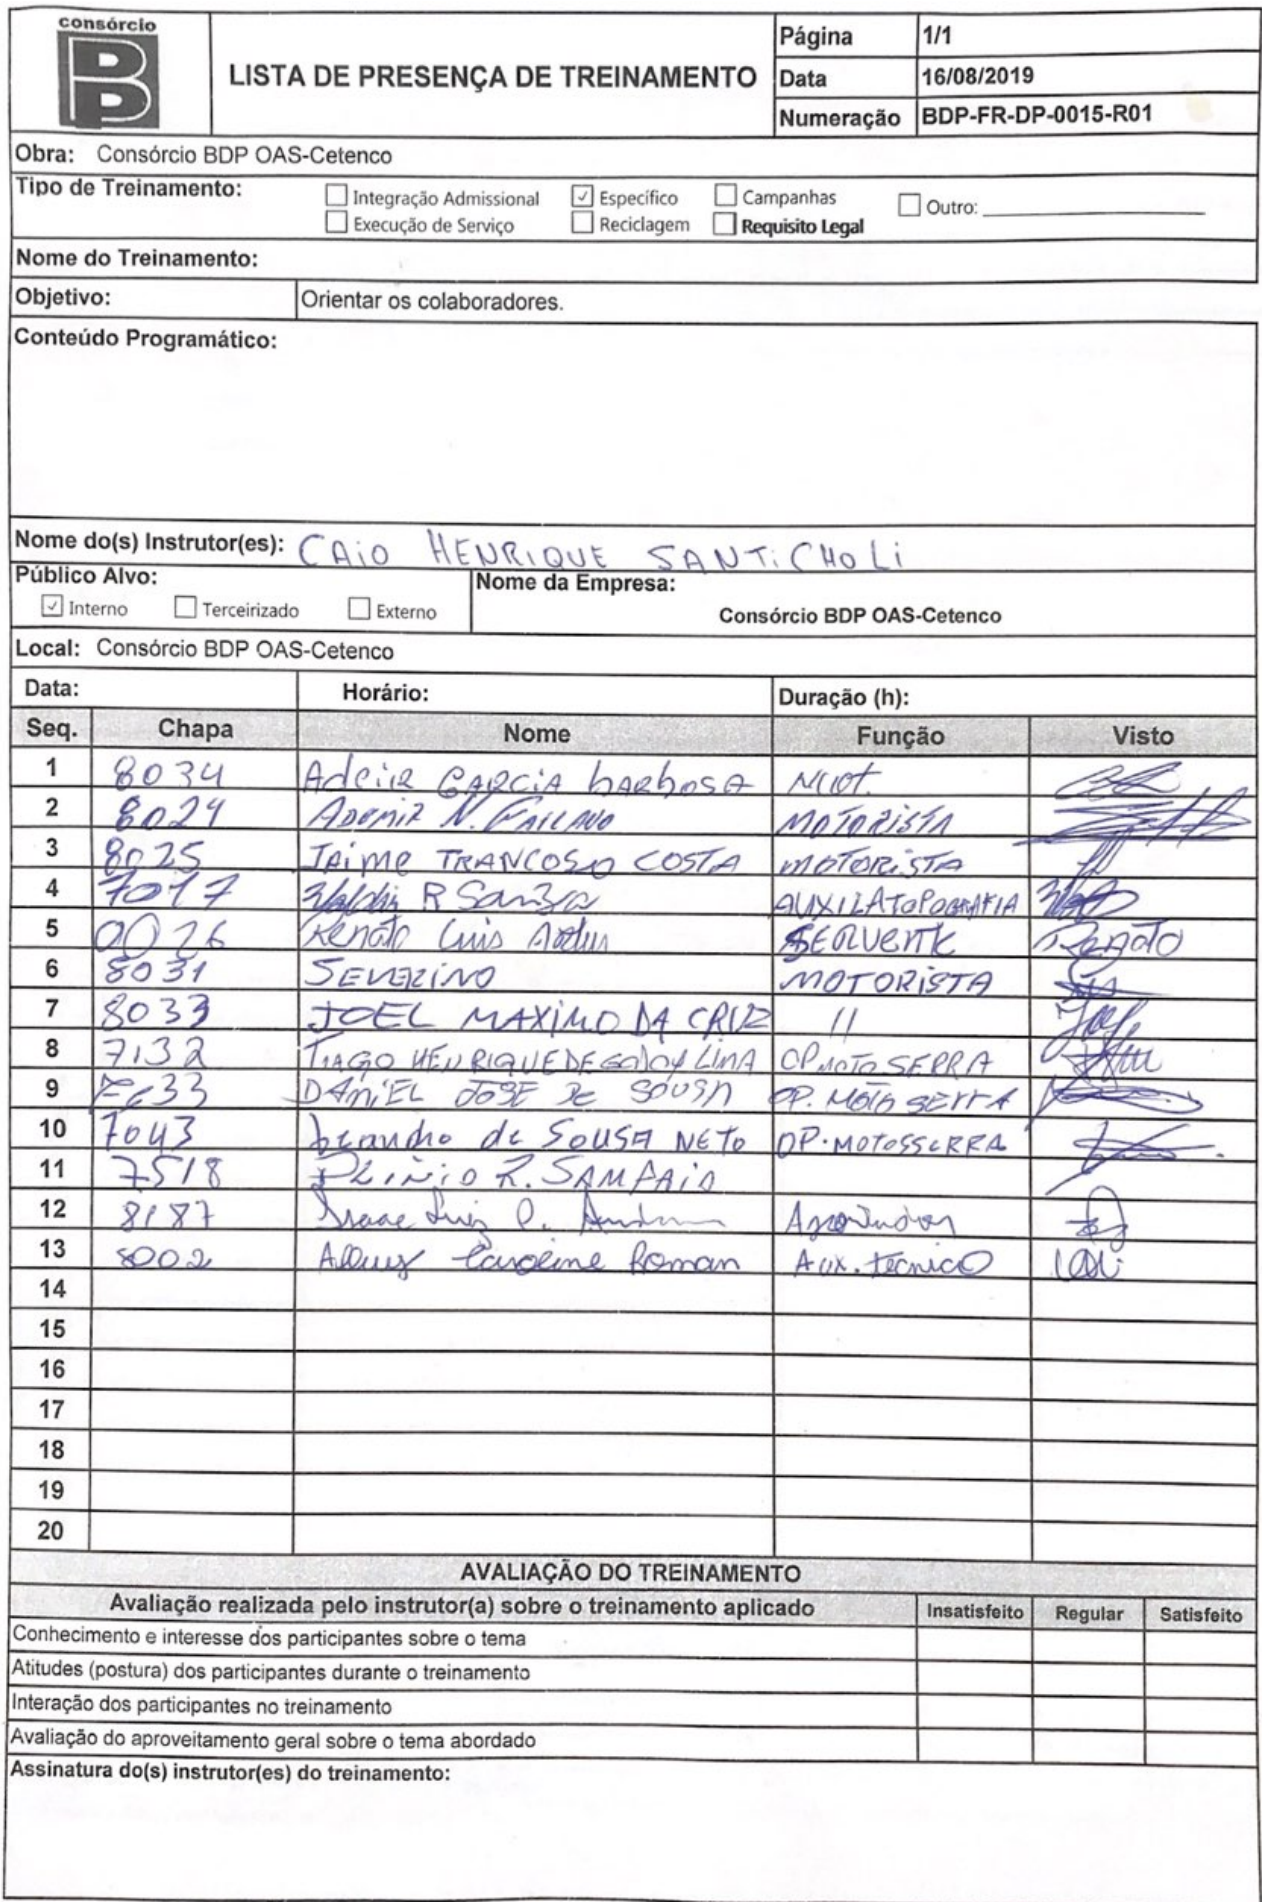 consórcio
LISTA DE PRESENÇA DE TREINAMENTO
Página 1/1
Data 16/08/2019
Numeração BDP-FR-DP-0015-R01
Obra: Consórcio BDP OAS-Cetenco
Tipo de Treinamento:
Integração Admissional Específico Campanhas Outro:
Execução de Serviço Reciclagem Requisito Legal
Nome do Treinamento:
Objetivo: Orientar os colaboradores.
Conteúdo Programático:
Nome do(s) Instrutor(es): CAiO HENRiQUE SANTiCHOLi
Público Alvo: Nome da Empresa:
Interno Terceirizado Externo Consórcio BDP OAS-Cetenco
Local: Consórcio BDP OAS-Cetenco
Data: Horário: Duração (h):
Seq. Chapa Nome Função Visto
1 8034 GARCiA bARbOSA
2 8024 ADEMIR N. MOTORISTA
3 8025 JAiME TRANCOSO COSTA MOTORiSTA
4 R
5 Renato Luis SERVENTE Renato
6 8031 SEVERiNO MOTORiSTA
7 8033 JOEL MAXIMO DA CRUZ 11
8 7132 TIAGO HENRIQUE DE GODOY LIMA OP MOTO SERRA
9 DANiEL JOSE DE SOUSA OP. MOTO SERRA
10 7043 Leandro de SOUSA NETO OP. MOTOSSERRA
11 7518 PLiNiO R. SAMPAiO
12 8187 Luiz
13 8002 Caroline Roman Aux. técnico
14
15
16
17
18
19
20
AVALIAÇÃO DO TREINAMENTO
Avaliação realizada pelo instrutor(a) sobre o treinamento aplicado Insatisfeito Regular Satisfeito
Conhecimento e interesse dos participantes sobre o tema
Atitudes (postura) dos participantes durante o treinamento
Interação dos participantes no treinamento
Avaliação do aproveitamento geral sobre o tema abordado
Assinatura do(s) instrutor(es) do treinamento: